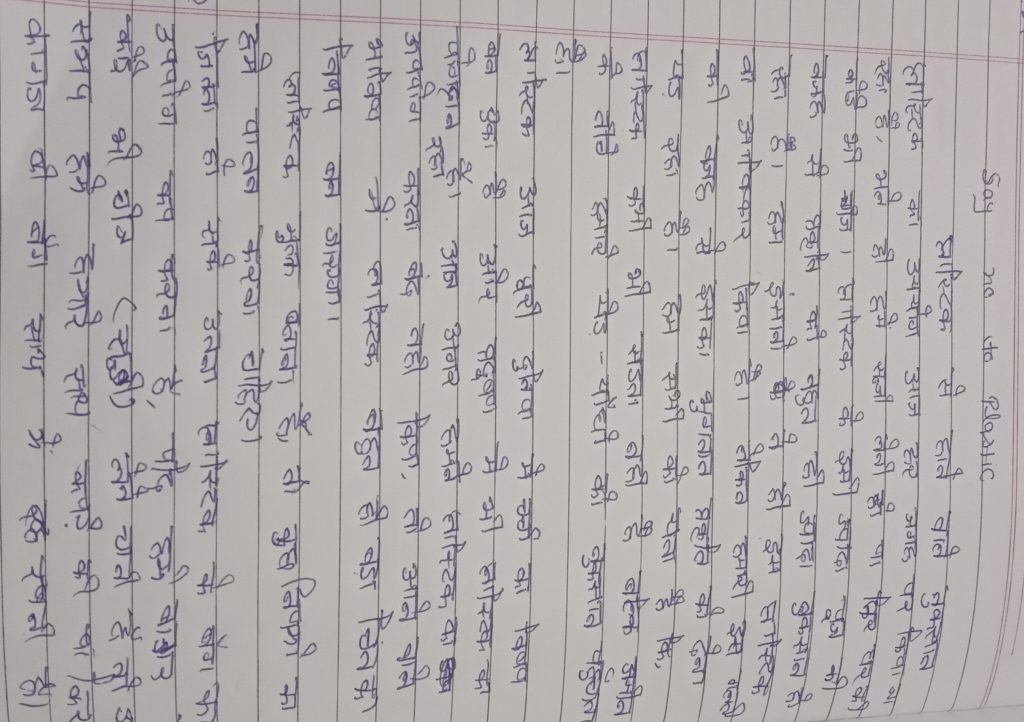 Say no to plastic
प्लास्टिक से होने वाले नुकसान
प्लास्टिक का उपयोग आज हर जगह पर किया जा
रहा है, भले ही हमें सब्जी लेनी हो या फिर घर की
कोई भी चीज। प्लास्टिक के इसी ज्यादा यूज की
वजह से प्रकृति को बहुत ही ज्यादा नुकसान हो
रहा है। हम इंसानों ने ही इस प्लास्टिक
का अविष्कार किया है। लेकिन हमारी इस गलती
की वजह से इसका भुगतान प्रकृति को देना
पड़ रहा है। हम सभी को पता है कि,
प्लास्टिक कभी भी सडता नहीं है बल्कि जमीन
के नीचे हमारे पेड़ - पौधों को नुकसान पहुँचाता
है।
प्लास्टिक आज पूरी दुनिया में चर्चा का विषय
बन चुका है और प्रदूषण में भी प्लास्टिक का
योगदान रहा है। आज अगर हमने प्लास्टिक का
उपयोग करना बंद नहीं किया, तो आने वाले
भविष्य में प्लास्टिक बहुत ही बडा चिंता का
विषय बन जाएगा।
प्लास्टिक मुक्त बनाना है तो कुछ नियमों का
हमें पालन करना चाहिए।
जितना हो सके उतना प्लास्टिक के बॅग का
उपयोग कम करना है, यदि हम बाजार
कोई भी चीज (सब्जी) लेने जाते है तो
समय हमें हमारे साथ कपड़े की या फिर
कागज की बॅग साथ में रखनी है।